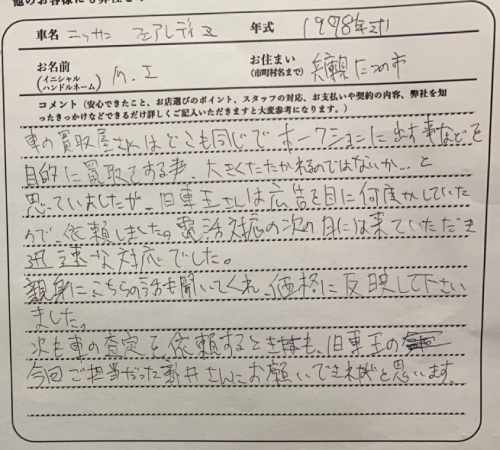 車名 ニッサン フェアレディZ 年式 1978年式
お名前 (イニシャル ハンドルネーム) M.I お住まい (市町村名まで) 兵庫県たつの市
コメント (安心できたこと、お店選びのポイント、スタッフの対応、お支払いや契約の内容、弊社を知
ったきっかけなどできるだけ詳しくご記入いただきますと大変参考になります。)
車の買取屋さんはどこも同じでオークションに出す事などを
目的に買取をする事、大きくたたかれるのではないか…と
思っていましたが、旧車王さんは広告を目に何度かしていた
ので、依頼しました。電話対応の次の日には来ていただき
迅速な対応でした。
親身にこちらの話も聞いてくれ、価格に反映して下さい
ました。
次も車の査定を、依頼するときも、旧車王の
今回ご担当だった新井さんにお願いできればと思います。